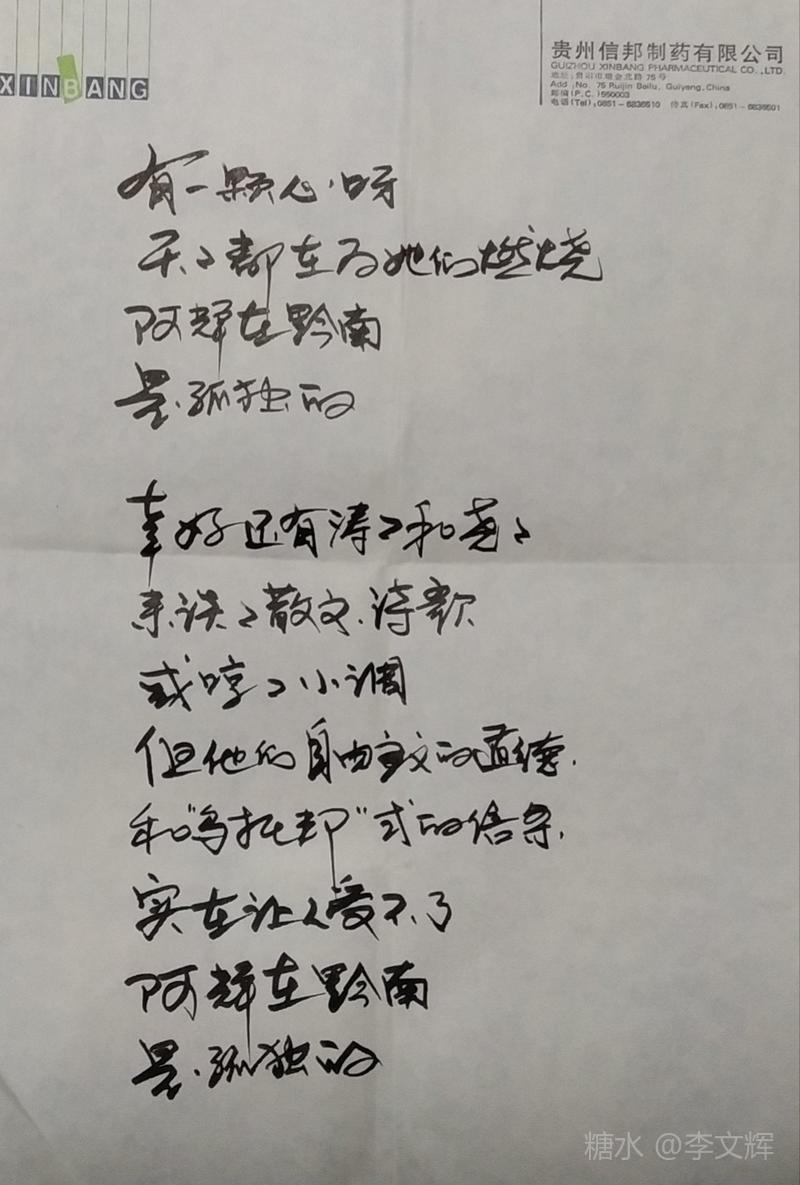 XINBANG
贵州信邦制药有限公司
GUIZHOU XINBANG PHARMACEUTICAL CO.,LTD.
地址:贵阳市瑞金北路 75 号
Add :No. 75 Ruijin Beilu, Guiyang,China
邮编(P.C.)550003
电话(Tel):0851-6836510 传真(Fax):0851-6836501
有一颗心呀
天々都在为她们燃烧
阿辉在黔南
是孤独的
幸好还有涛々和尧々
来谈々散文、诗歌
或哼々小调
但他的自由主义的道德、
和“乌托邦”式的信条,
实在让人受不了
阿辉在黔南
是孤独的
糖水 @李文辉